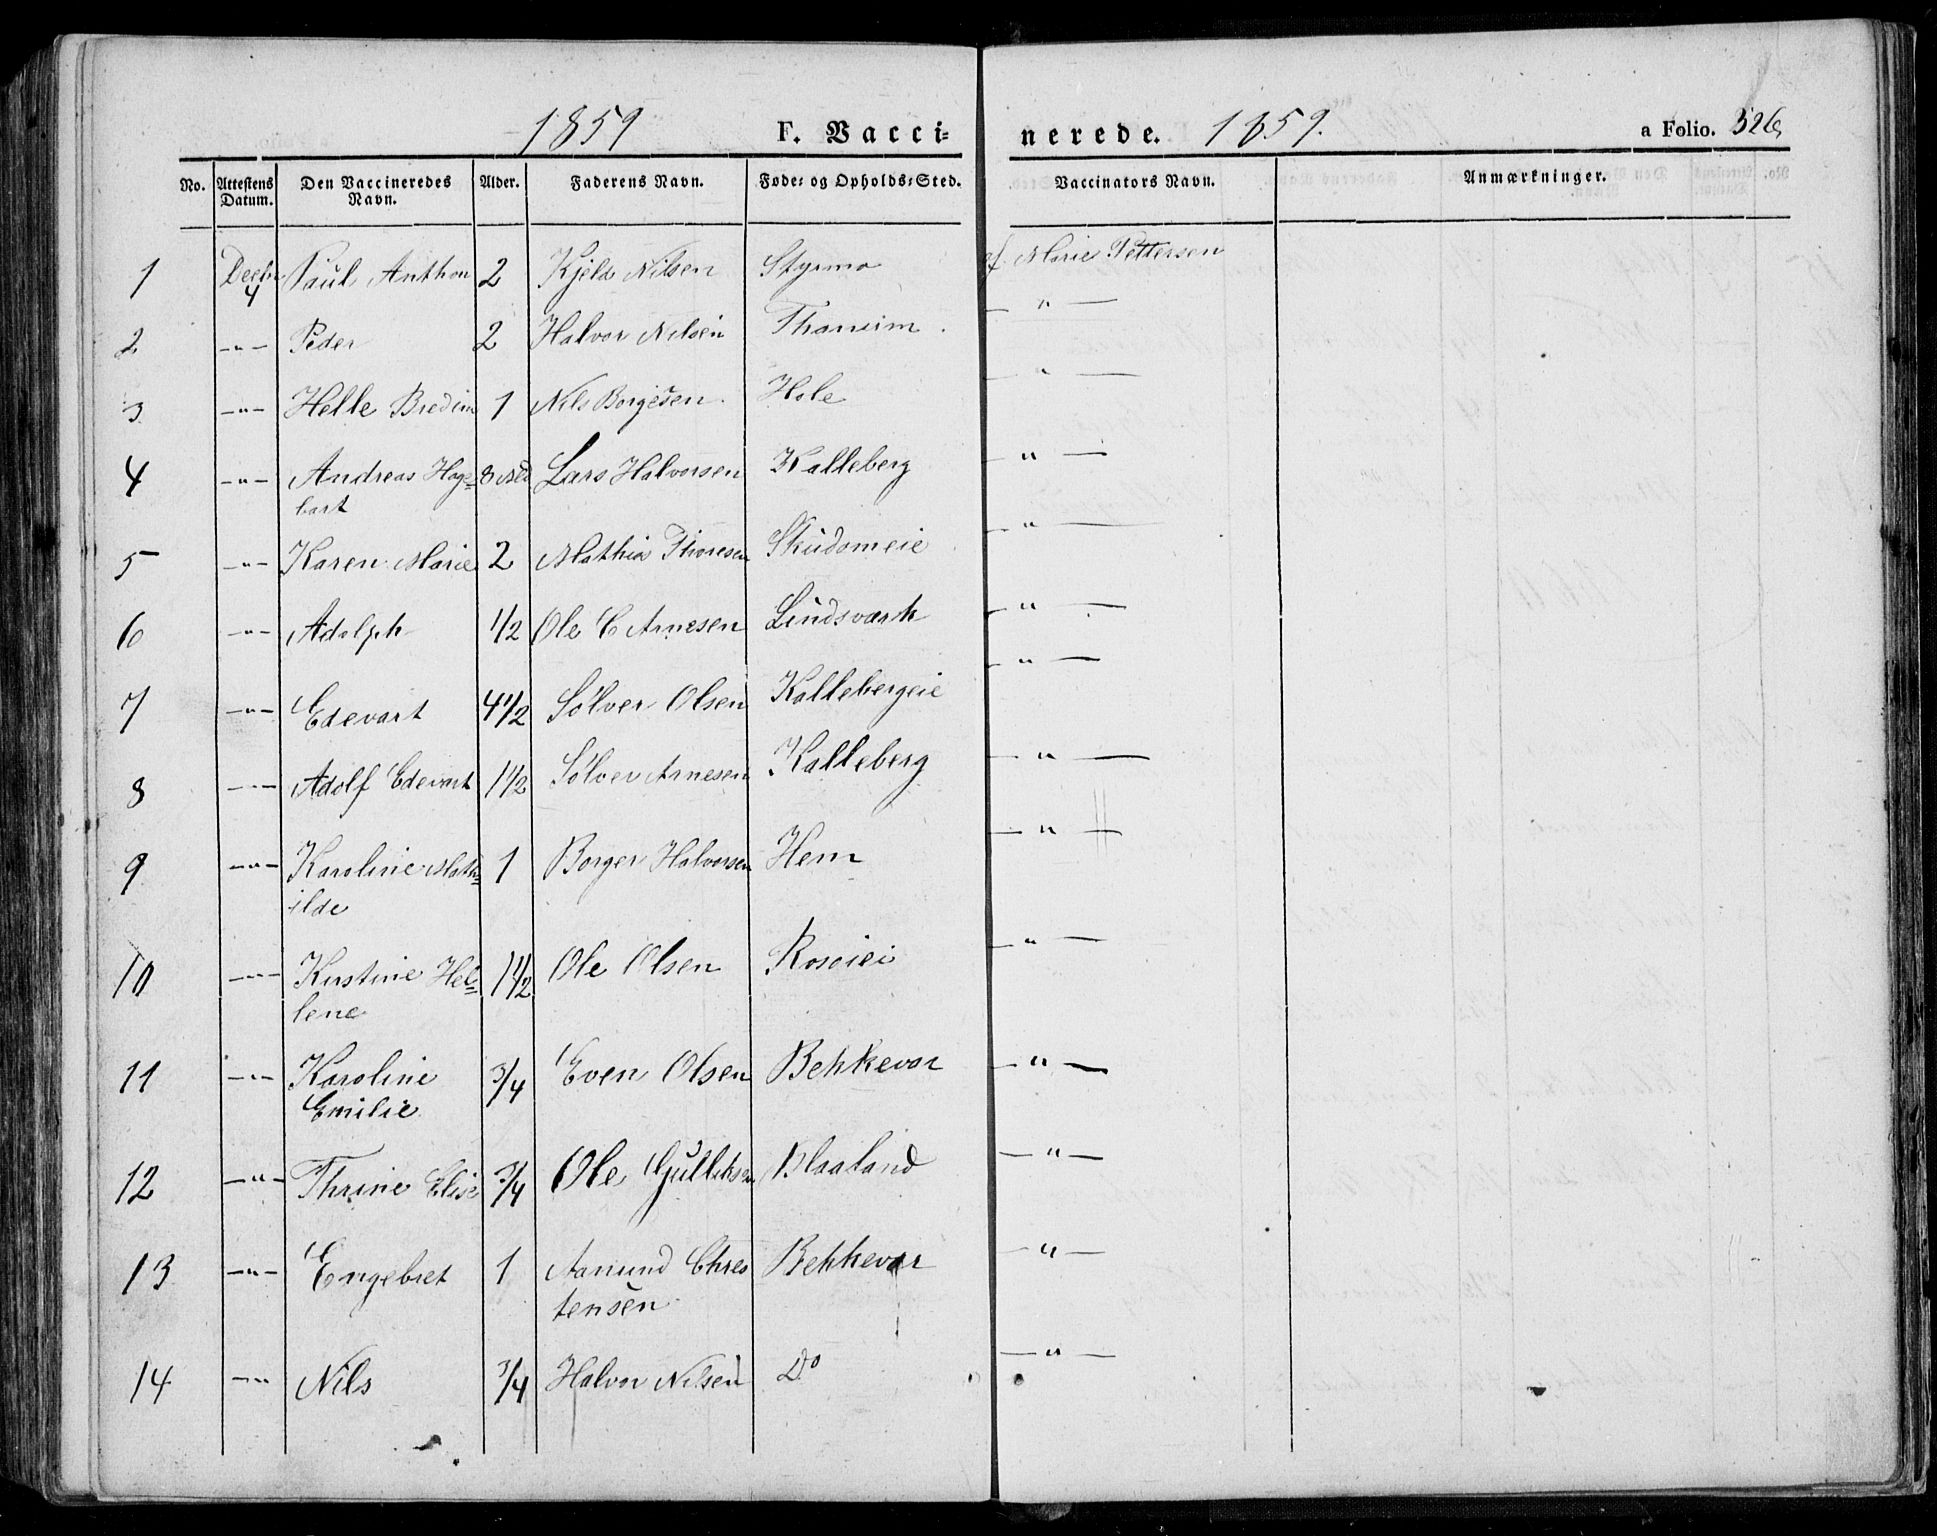 1859 F. Vacci= nerede. 1859. a Folio. 326
No. Attestens Datum. Den Vaccineredes Navn. Alder. Faderens Navn. Føde= og Opholds=Sted. Vaccinators Navn. Anmærkninger.
1 Decbr 4 Paul Anthon 2 Kjeld Nilsen Styrmo af Marie Pettersen
2 -"- Peder 2 Halvor Nilsen -"-
3 -"- Helle 1 Nils Borgesen Hole -"-
4 -"- Andreas Hage= 8 Lars Halvorsen Kalleberg -"-
bart
5 -"- Karen Marie 2 Mathias Thoresen Skudomeie -"-
6 -"- Adolph 1/2 Ole C Arnesen Lindsværk -"-
7 -"- Edevart 4 1/2 Sølver Olsen Kallebergeie -"-
8 -"- Adolf Edevart 1 1/2 Sølver Arnesen Kalleberg -"-
9 -"- Karoline Math= 1 Borger Halvorsen Hem -"-
ilde
10 -"- Kirstine Hel= 1 1/2 Ole Olsen -"-
lene
11 -"- Karoline 3/4 Even Olsen Bekkevar -"-
Emilie
12 -"- Thrine Elise 3/4 Ole Gulliksen Blaaland -"-
13 -"- Engebret 1 Aamund Chres Bekkevar -"-
tensen
14 -"- Nils 3/4 Halvor Nilsen Do -"-